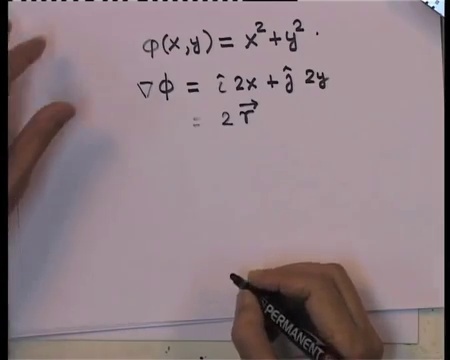 φ(x,y) = x² + y².
∇φ = î 2x + ĵ 2y
= 2 r⃗
PERMANENT